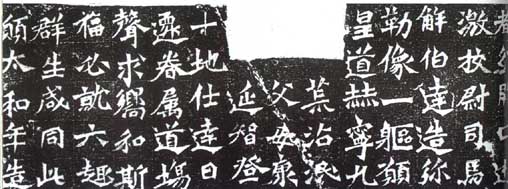 激校尉司馬
解伯達造弥
勒像一軀願
皇道赫寧九
荒沾泯
父母康
延智登
十地仕達日
遷眷属道場
聲求嚮和斯
福必就六趣
群生咸同此
願太和年造